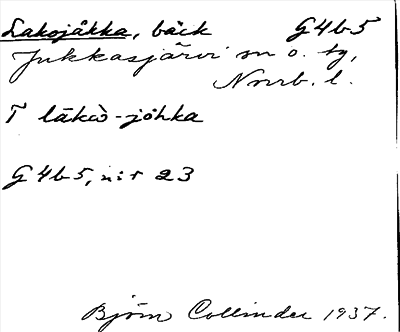 Lakojåkka, bäck G4b5
Jukkasjärvi sn o. tg,
Norrb. l.
T lāku̬̇̀-jȯhka
G4b5, n:r 23
Björn Collinder 1937.